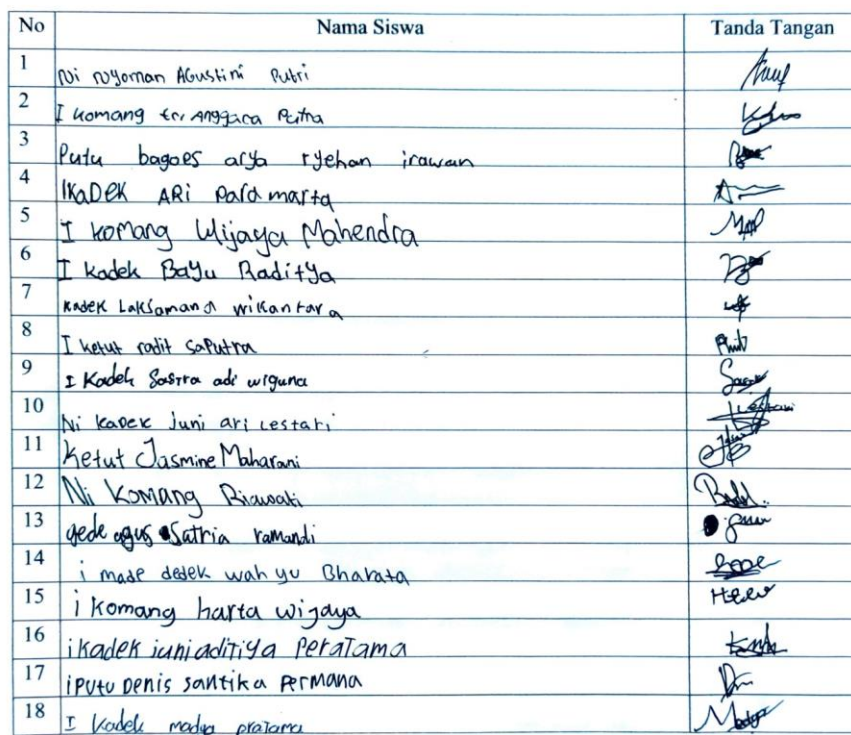 No Nama Siswa Tanda Tangan
1 Ni Nyoman Agustini Putri
2 I komang tri Anggara Putra
3 Putu bagoes arya ryehan irawan
4 IKaDEK ARi Para marta
5 I komang Wijaya Mahendra
6 I kadek Bayu Raditya
7 kadek Laksamana wikantara
8 I ketut radit saputra
9 I Kadek Sastra adi wiguna
10 Ni kadek Juni ari lestari Lestari
11 Ketut Jasmine Maharani
12 Ni Komang Riawati
13 gede agus Satria ramandi
14 i made dedek wah yu Bharata
15 i komang harta wijaya
16 i kadek juni aditiya Peratama
17 i Putu Denis santika Permana
18 I Kadek madya pratama Madya